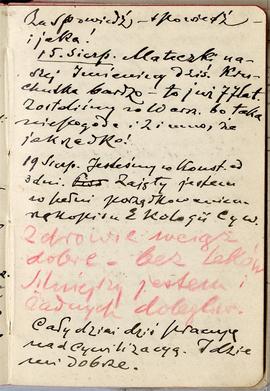 Zaspowiedź – spowiedź –
i jaka!
15. Sierp. Mateczk. na-
szej Imieniny dziś.
chutka bardzo – to już 77 lat.
Zostaliśmy w Warsz. bo taka
niepogoda i zimno, że
jak rzadko!
19 Sierp. Jesteśmy w Konst. od
3 dni. Zajęty jestem
w pełni porządkowaniem
rękopisu Ekologii Cyw.
Zdrowie wciąż
dobre – bez leków
jestem i
żadnych dolegliw.
Cały dzień dziś pracuję
nad cywilizacją. Idzie
mi dobrze.